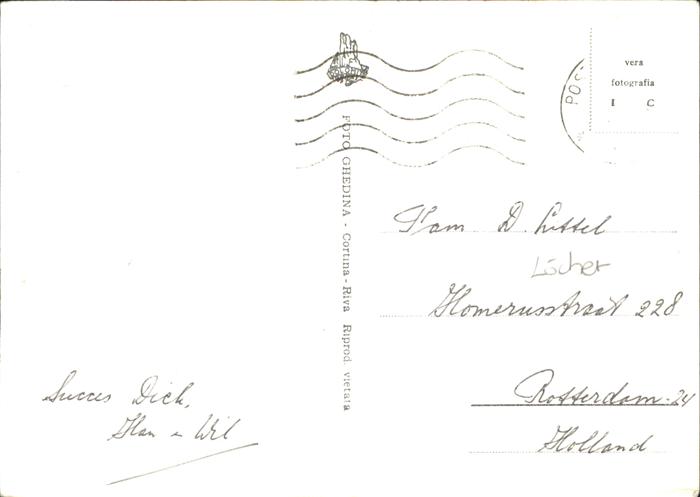 vera
fotografia
I C
POS
FOTO GHEDINA - Cortina - Riva Riprod. vietata
Fam D. Littel
Löcher
Homerusstraat 228
Rotterdam-24
Holland
Succes Dick,
Han en Wil